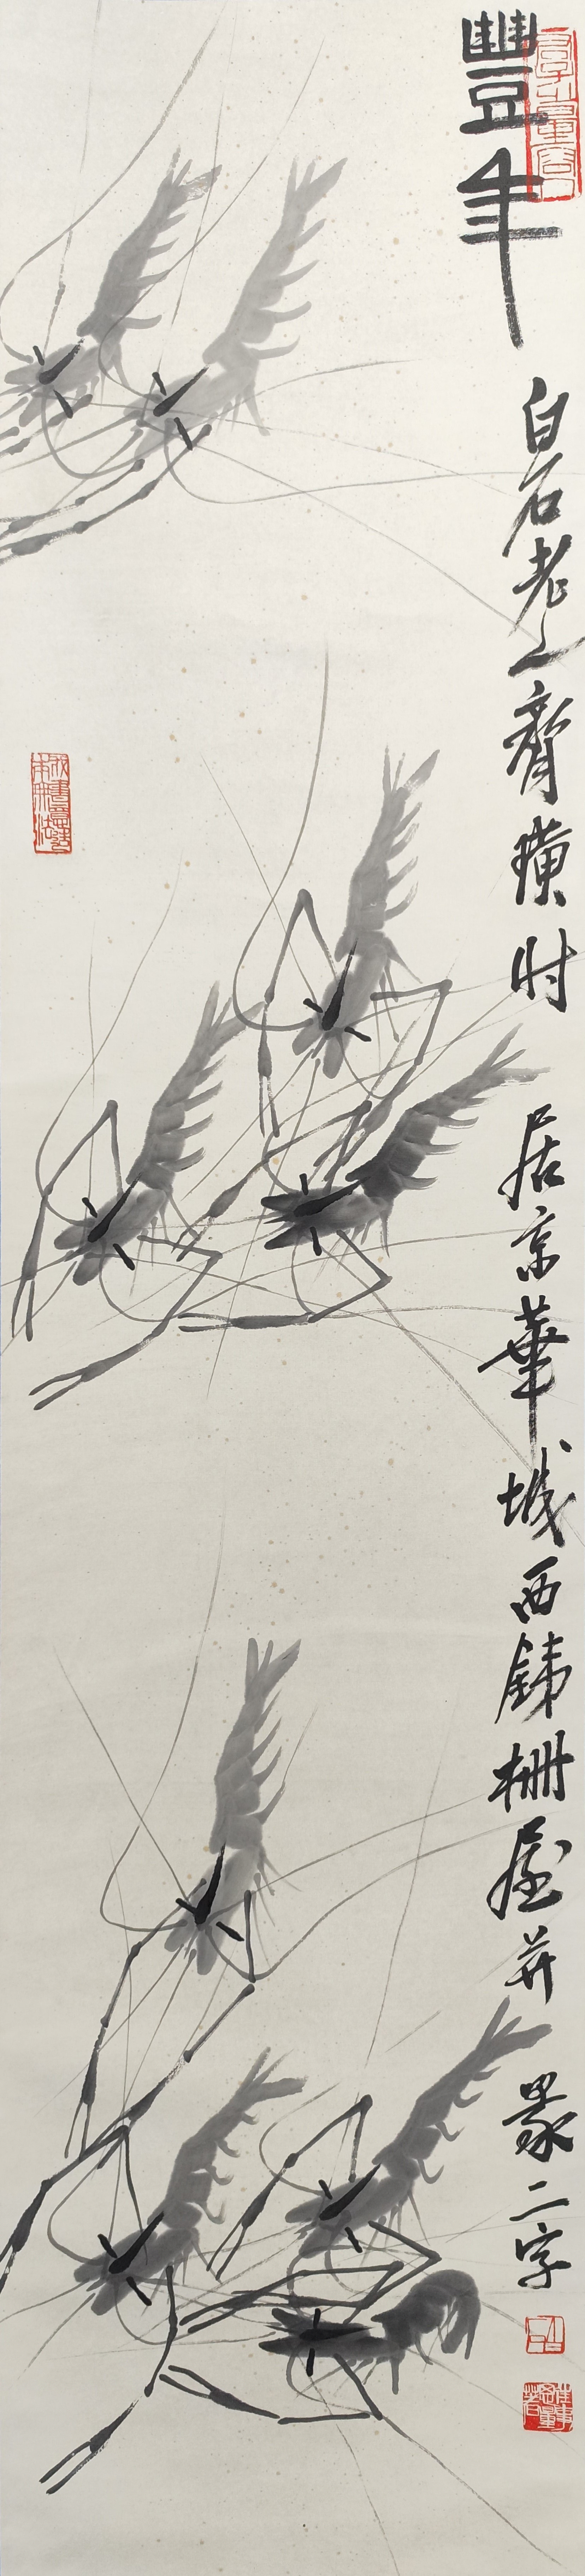 豐年
白石老人齊璜時居京華城西鐵柵屋並篆二字